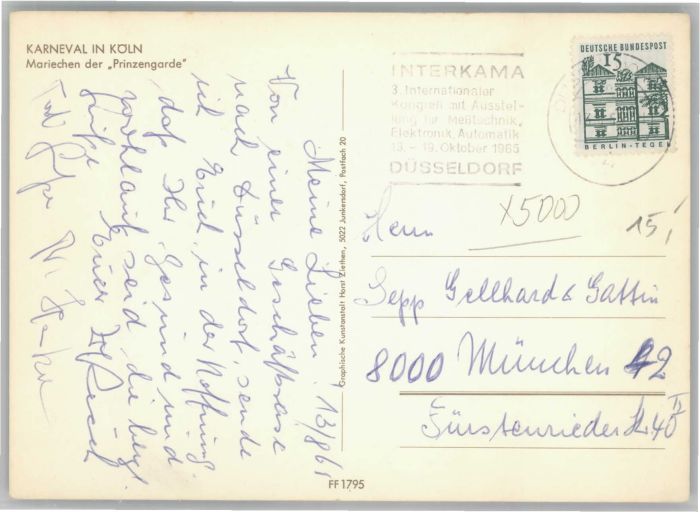 KARNEVAL IN KÖLN
Mariechen der „Prinzengarde"
INTERKAMA
3. Internationaler
Kongreß mit Ausstel-
lung für Meßtechnik,
Elektronik, Automatik
13. - 19. Oktober 1965
DÜSSELDORF
DEUTSCHE BUNDESPOST
15
BERLIN-TEGEL
Meine Lieben! 13/8 65
Von einer Geschäftsreise
nach Düsseldorf, sende
ich Euch, in der Hoffnung,
daß Ihr gesund und
wohlauf seid, die herzl.
Grüße Euer
Graphische Kunstanstalt Horst Ziethen, 5022 Junkersdorf, Postfach 20
x5000
15,/
Herrn
Sepp Gellhard & Gattin
8000 München 42
Fürstenrieder Str 40 II
FF 1795